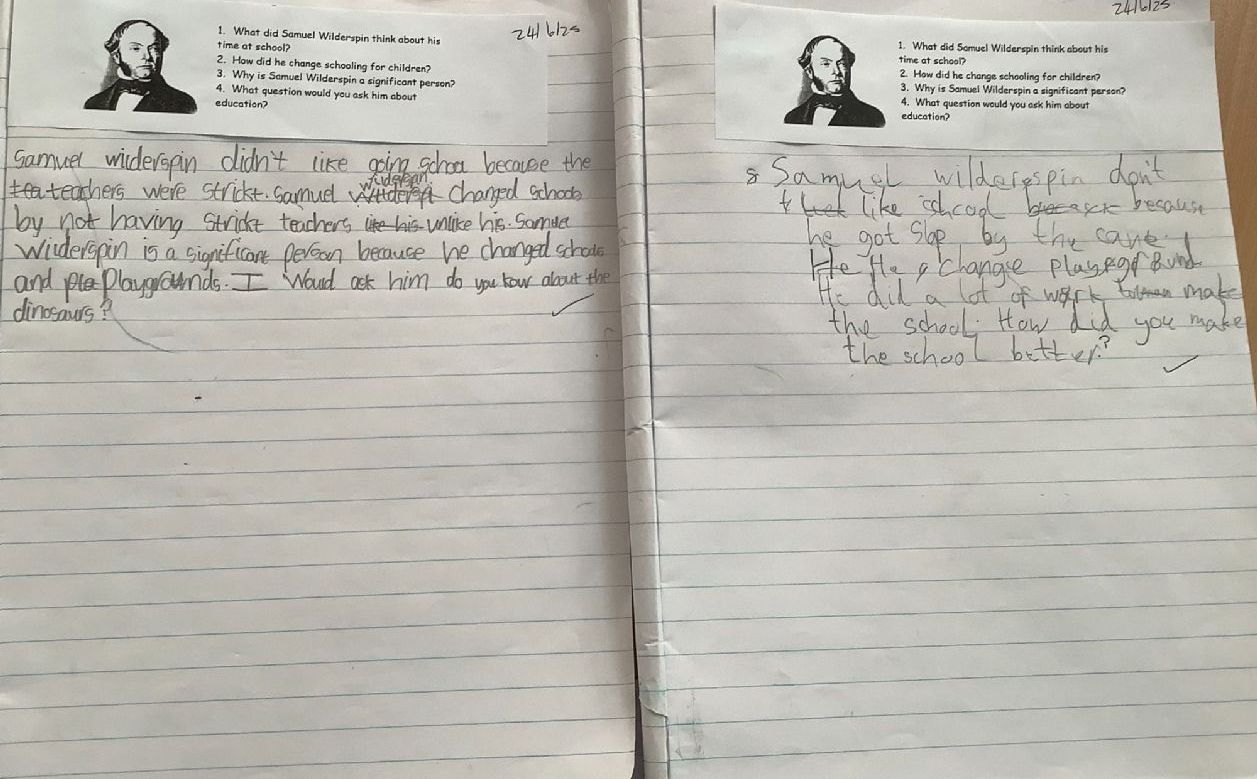 24/6/25
1. What did Samuel Wilderspin think about his
time at school?
2. How did he change schooling for children?
3. Why is Samuel Wilderspin a significant person?
4. What question would you ask him about
education?
Samuel wilderspin didn't like going school because the
tea teachers were strickt. Samuel wilderspin changed schools
by not having strickt teachers like his unlike his. Samuel
Wilderspin is a significant person because he changed schools
and pla playgrounds. I Would ask him do you know about the
dinosaurs?
24/6/25
1. What did Samuel Wilderspin think about his
time at school?
2. How did he change schooling for children?
3. Why is Samuel Wilderspin a significant person?
4. What question would you ask him about
education?
s Samuel wilderespin don't
like school because
he got slap by the cane.
He He change
He did a lot of work make
the school. How did you make
the school better?